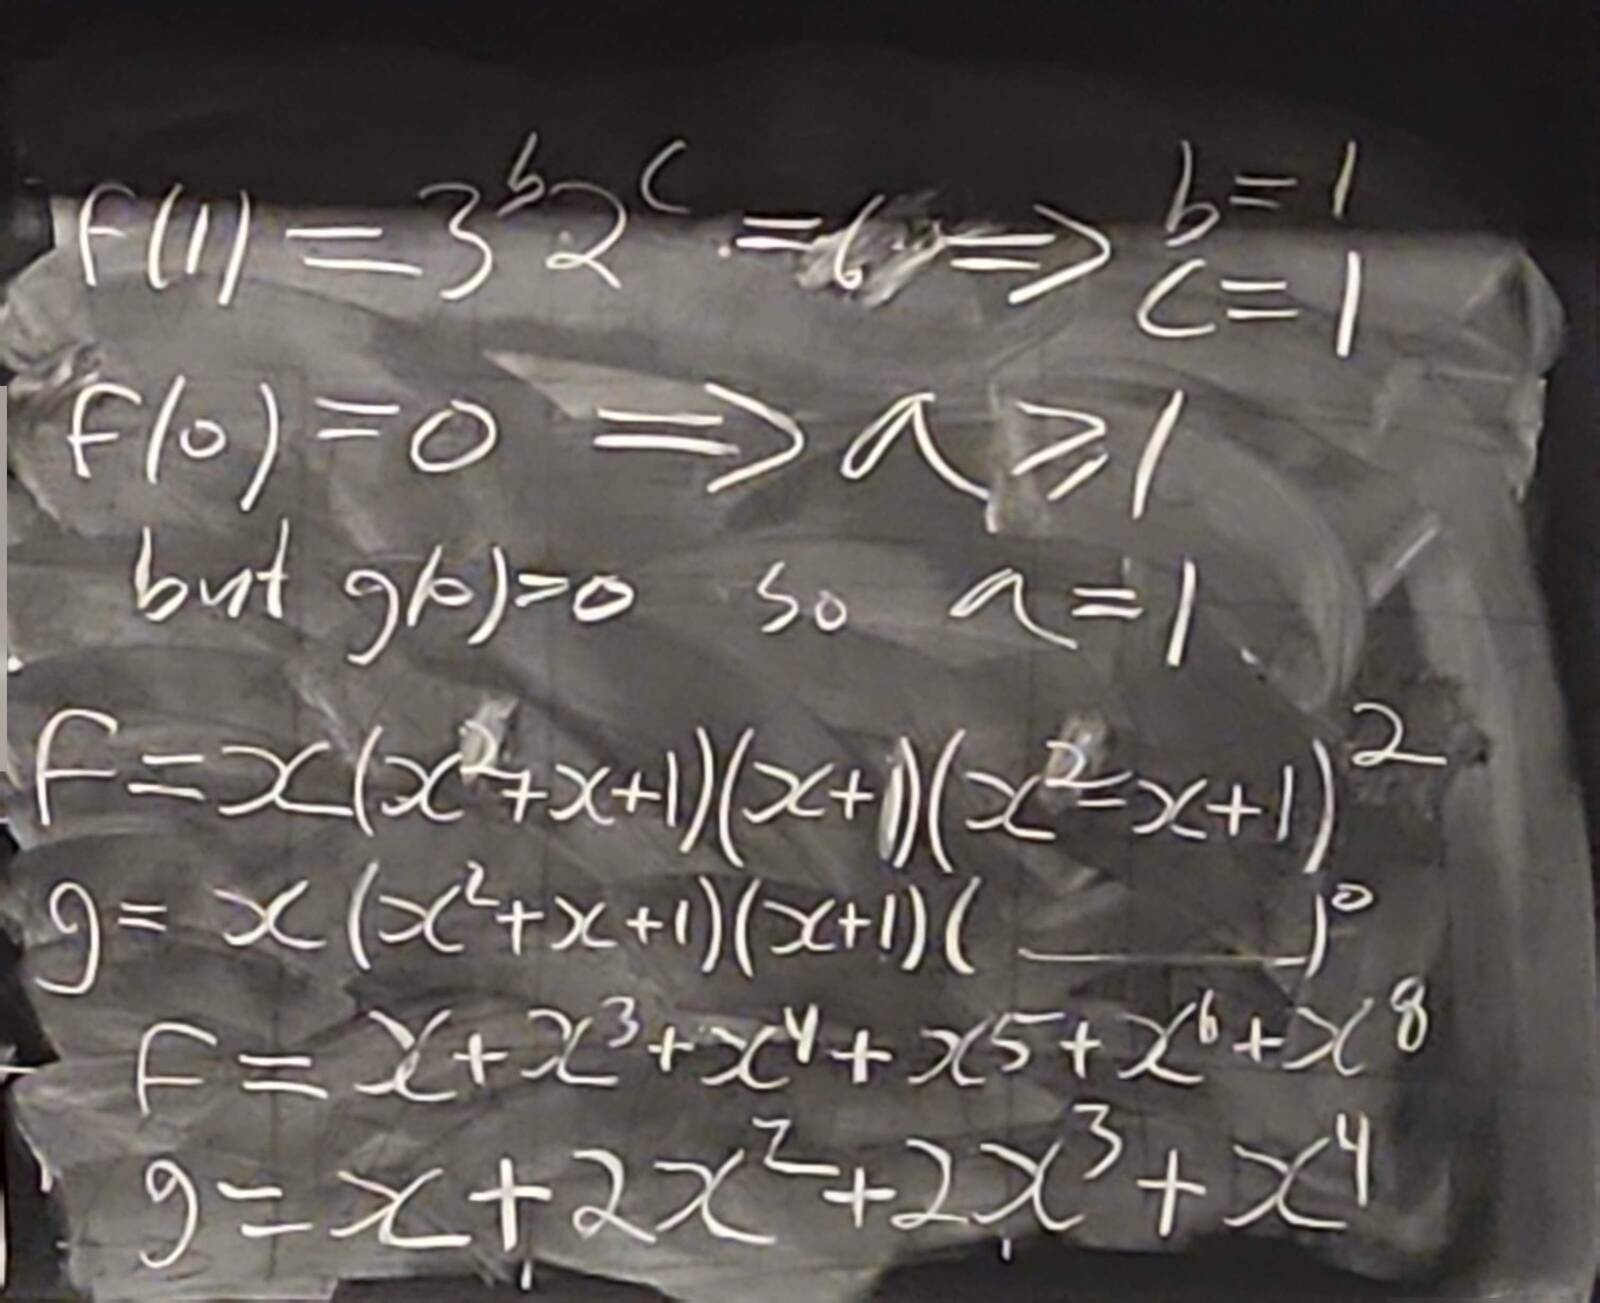 f(1) = 3^b 2^c = 6 ⇒ b = 1
c = 1
f(0) = 0 ⇒ a ≥ 1
but g(0) = 0 so a = 1
f = x(x²+x+1)(x+1)(x²-x+1)²
g = x(x²+x+1)(x+1)(____)⁰
f = x + x³ + x⁴ + x⁵ + x⁶ + x⁸
g = x + 2x² + 2x³ + x⁴